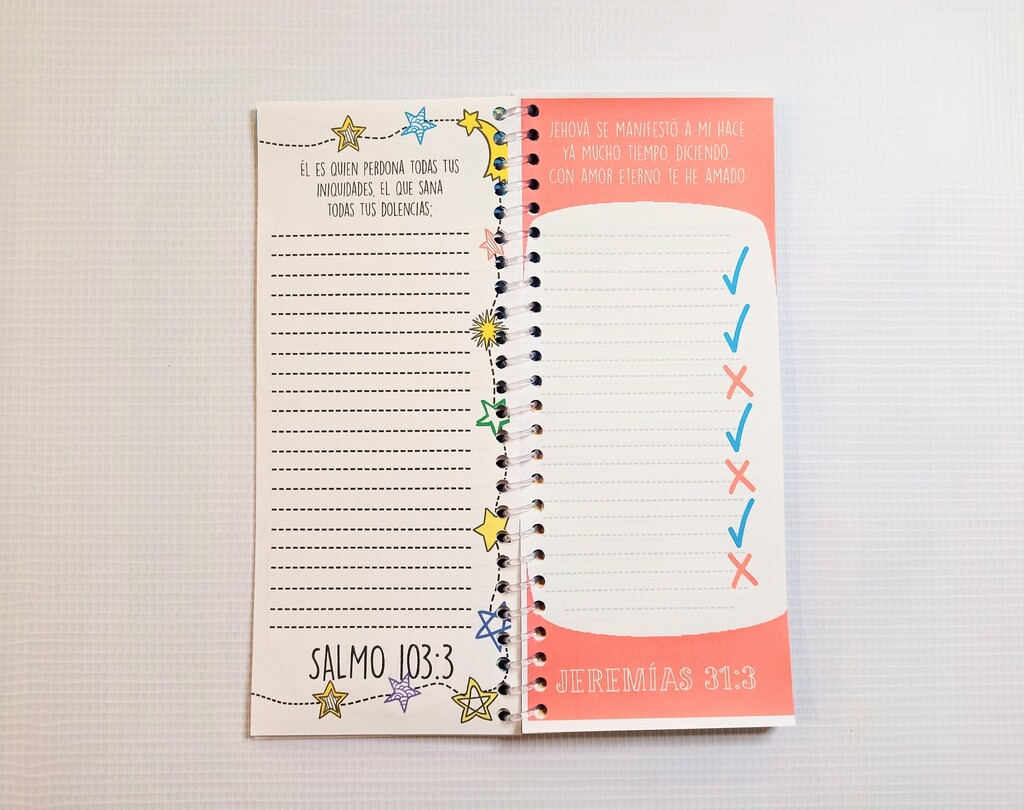 ÉL ES QUIEN PERDONA TODAS TUS
INIQUIDADES, EL QUE SANA
TODAS TUS DOLENCIAS;
SALMO 103:3
JEHOVÁ SE MANIFESTÓ A MÍ HACE
YA MUCHO TIEMPO, DICIENDO:
CON AMOR ETERNO TE HE AMADO
JEREMÍAS 31:3